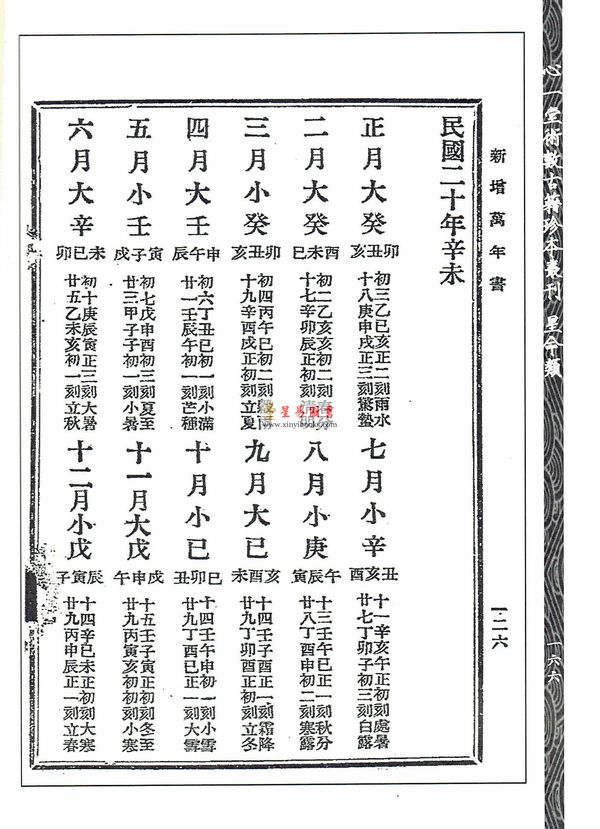 心一堂術數古籍珍本叢刊 星命類
一六六
新增萬年書
一二六
民國二十年辛未
正月大癸
卯丑亥
初三乙巳亥正二刻雨水
十八庚申戌正三刻驚蟄
二月大癸
酉未巳
初二乙亥亥初二刻春分
十七辛卯辰正初刻清明
三月小癸
卯丑亥
初四丙午巳初二刻穀雨
十九辛酉戌正初刻立夏
四月大壬
申午辰
初六丁丑巳初一刻小滿
廿一壬辰午初一刻芒種
五月小壬
寅子戌
初七戊申酉初三刻夏至
廿三甲子子初一刻小暑
六月大辛
未巳卯
初十庚辰寅正三刻大暑
廿五乙未亥初一刻立秋
七月小辛
丑亥酉
十一辛亥午正初刻處暑
廿七丁卯子初三刻白露
八月小庚
午辰寅
十三壬午巳正一刻秋分
廿八丁酉申初二刻寒露
九月大己
亥酉未
十四壬子酉正一刻霜降
廿九丁卯酉正初刻立冬
十月小己
巳卯丑
十四壬午申初一刻小雪
廿九丁酉巳正一刻大雪
十一月大戊
戌申午
十五壬子寅正初刻冬至
廿九丙寅亥初初刻小寒
十二月小戊
辰寅子
十四辛巳未正初刻大寒
廿九丙申辰正一刻立春
星易圖書
www.xinyibooks.com